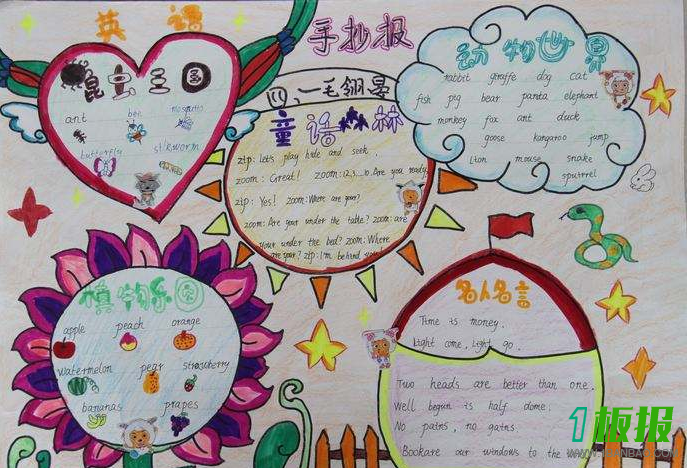 英语
手抄报
(1)、一毛翎晏
昆虫王国
ant bee mosquito
butterfly silkworm
童话森林
zip: Let's play hide and seek.
zoom: Great! zoom: 1,2,3...10. Are you ready
zip: Yes! zoom: Where are you?
zoom: Are you under the table? zoom: are
your under the bed? zoom: Where
are you? zip: I'm behind
动物世界
rabbit giraffe dog cat
fish pig bear panta elephant
monkey fox ant duck
goose kangaroo jump
Lion mouse snake
squirrel
植物乐园
apple peach orange
watermelon pear strawberry
bananas grapes
名人名言
Time is money.
Light come, light go.
Two heads are better than one.
Well begun is half dome.
No pains, no gains.
Bookare our windows to the
1板报